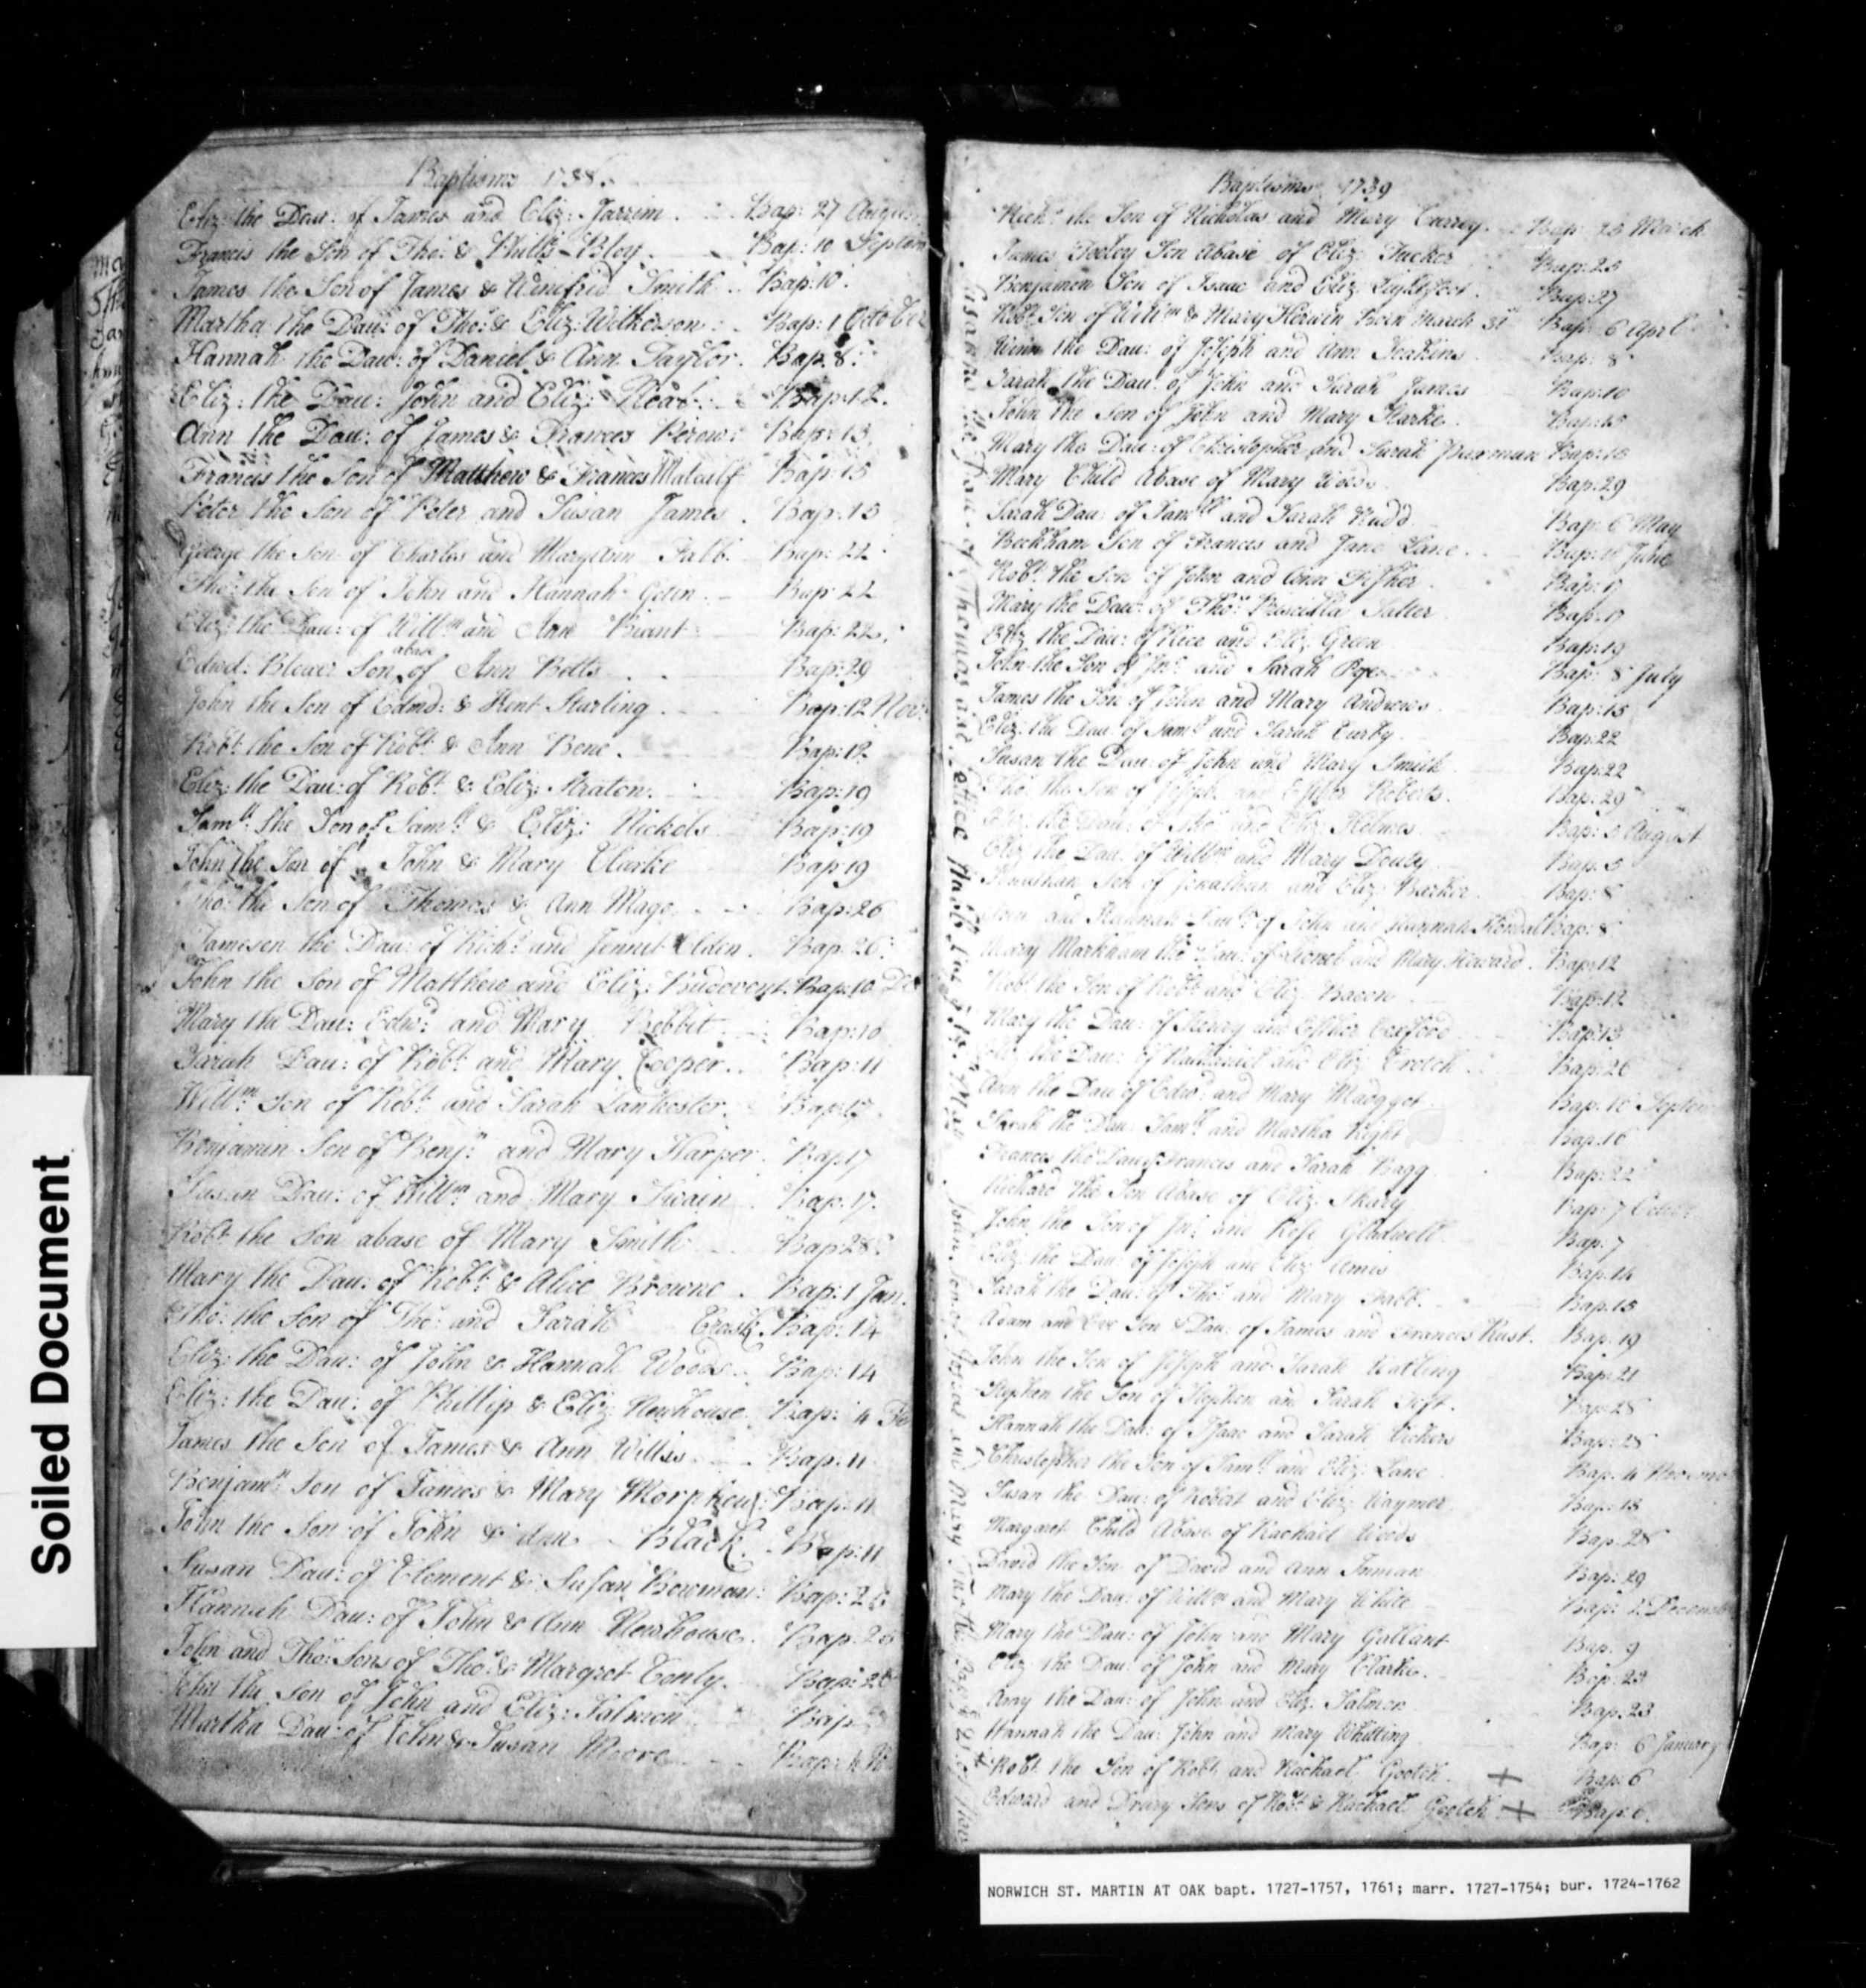 Baptisms 1738.
Eliz: the Dau: of James and Eliz: Jarrim. Bap: 27 August
Francis the Son of Tho: & Phillis Bloy. Bap: 10 Septem
James the Son of James & Winifred Smith. Bap: 10.
Martha the Dau: of Tho: & Eliz: Wilkerson. Bap: 1 October
Hannah the Dau: of Daniel & Ann Taylor. Bap: 8.
Eliz: the Dau: John and Eliz: Bap: 12.
Ann the Dau: of James & Frances Perow: Bap: 13.
Francis the Son of Matthew & Frances Matcalf Bap: 15
Peter the Son of Peter and Susan James. Bap: 15
George the Son of Charles and MaryAnn Bap: 22.
Tho: the Son of John and Hannah Bap: 22
Eliz: the Dau: of Willm and Ann Briant Bap: 22.
Edwd: Son abase of Ann Botts Bap: 29
John the Son of Edmd: & Kent Starling. Bap: 12 Nov:
Robt the Son of Robt & Ann Bene. Bap: 12
Eliz: the Dau: of Robt & Eliz: Straton. Bap: 19
Samll the Son of Samll & Eliz: Nickols Bap: 19
John the Son of John & Mary Clarke Bap 19
Tho: the Son of Thomas & Ann Mage. Bap: 26
Jamisen the Dau: of Richd and Jennit Olden. Bap: 26:
John the Son of Matthew and Eliz: Bap: 10 De
Mary the Dau: Edwd and Mary Bebbit Bap: 10
Sarah Dau: of Robt and Mary Cooper. Bap: 11
Willm Son of Robt and Sarah Lankester. Bap:
Benjamin Son of Benjn and Mary Harper. Bap 17
Susan Dau: of Willm and Mary Swain. Bap: 17.
Robt the Son abase of Mary Smith Bap 28.
Mary the Dau: of Robt & Alice Browne. Bap: 1 Jan.
Tho: the Son of Tho: and Sarah Crask Bap: 14
Eliz: the Dau: of John & Hannah Woods. Bap: 14
Eliz: the Dau: of Phillip & Eliz: Newhouse. Bap: 4 Fe
James the Son of James & Ann Willis. Bap: 11
Benjamn Son of James & Mary Morphew: Bap: 11
John the Son of John & Ann Black. Bap: 11
Susan Dau: of Clement & Susan Bowman: Bap:
Hannah Dau: of John & Ann Newhouse. Bap:
John and Tho: Sons of Tho: & Margret Conly. Bap:
John the Son of John and Eliz: Salmon Bap
Martha Dau: of John & Susan Moore Bap: 4
Baptisms 1739
Nichs the Son of Nicholas and Mary Carrey. Bap: 25 March
James Son Abase of Eliz: Tucker Bap: 25
Benjamin Son of Isaac and Eliz: Lightfoot. Bap: 27
Robt Son of Willm & Mary Born March 31st Bap: 6 Aprl
the Dau: of Joseph and Ann Jenkins Bap: 8
Sarah the Dau: of John and Sarah James Bap: 10
John the Son of John and Mary Starke. Bap: 15
Mary the Dau: of Christopher and Sarah Paxman Bap: 15
Mary Child Abase of Mary Woods. Bap: 29
Sarah Dau: of Samll and Sarah Rudd Bap: 6 May
Beckham Son of Frances and Jane Lane. Bap: June
Robt the Son of John and Ann Fisher. Bap: 17
Mary the Dau: of Thos Priscilla Salter Bap: 17
Eliz the Dau: of Rice and Eliz Green Bap: 19
John the Son of Jno and Sarah Bap: 8 July
James the Son of John and Mary Andrews Bap: 15
Eliz: the Dau: of Samll and Sarah Curby. Bap: 22
Susan the Dau: of John and Mary Smith Bap: 22
Tho: the Son of Joseph and Esther Roberts. Bap: 29
Eliz: the Dau: of Tho: and Eliz: Holmes Bap: 5 August
Eliz the Dau: of Willm and Mary Douty Bap: 5
Jonathan Son of Jonathan and Eliz: Barker. Bap: 8
and Hannah of John and Hannah Kendal Bap: 8
Mary Markham the Dau: of Lionel and Mary Howard. Bap: 12
Robt the Son of Robt and Eliz Bacon Bap: 12
Mary the Dau: of Henry and Esther Bap: 13
the Dau: of Nathaniel and Eliz Crotch Bap: 26
Ann the Dau: of Edwd and Mary Madgget Bap: 10 Septem
Sarah the Dau: Samll and Martha Right Bap: 16
Frances the Dau of Frances and Sarah Bagg. Bap: 22
Richard the Son Abase of Eliz: Skary Bap: 7 Octob
John the Son of Jno and Rose Gladwell Bap: 7
Eliz: the Dau: of Joseph and Eliz Amis Bap: 14
Sarah the Dau: of Tho: and Mary Bap: 15
Adam and Eve Son & Dau: of James and Frances Rust. Bap: 19
John the Son of Joseph and Sarah Watling Bap: 21
Stephen the Son of Stephen and Sarah Tift. Bap: 28
Hannah the Dau: of Isaac and Sarah Vickers Bap: 28
Christopher the Son of Samll and Eliz: Lane Bap: 4 Novemb
Susan the Dau: of Robert and Eliz: Raymer Bap: 18
Margaret Child Abase of Rachael Woods Bap: 28
David the Son of David and Ann Inman Bap: 29
Mary the Dau: of Willm and Mary White Bap: 2 Decemb
Mary the Dau: of John and Mary Gallant Bap: 9
Eliz the Dau: of John and Mary Clarke. Bap: 23
Amy the Dau: of John and Eliz: Palmer Bap: 23
Hannah the Dau: John and Mary Whitting Bap: 6 January
Robt the Son of Robt and Rachael Gooteh. + Bap: 6
Edward and Drury Sons of Robt & Rachael Gooteh + Bap: 6.
Susanna the Dau. of Thomas and Lettice May
John Son of and Mary Nov
Soiled Document
NORWICH ST. MARTIN AT OAK bapt. 1727-1757, 1761; marr. 1727-1754; bur. 1724-1762